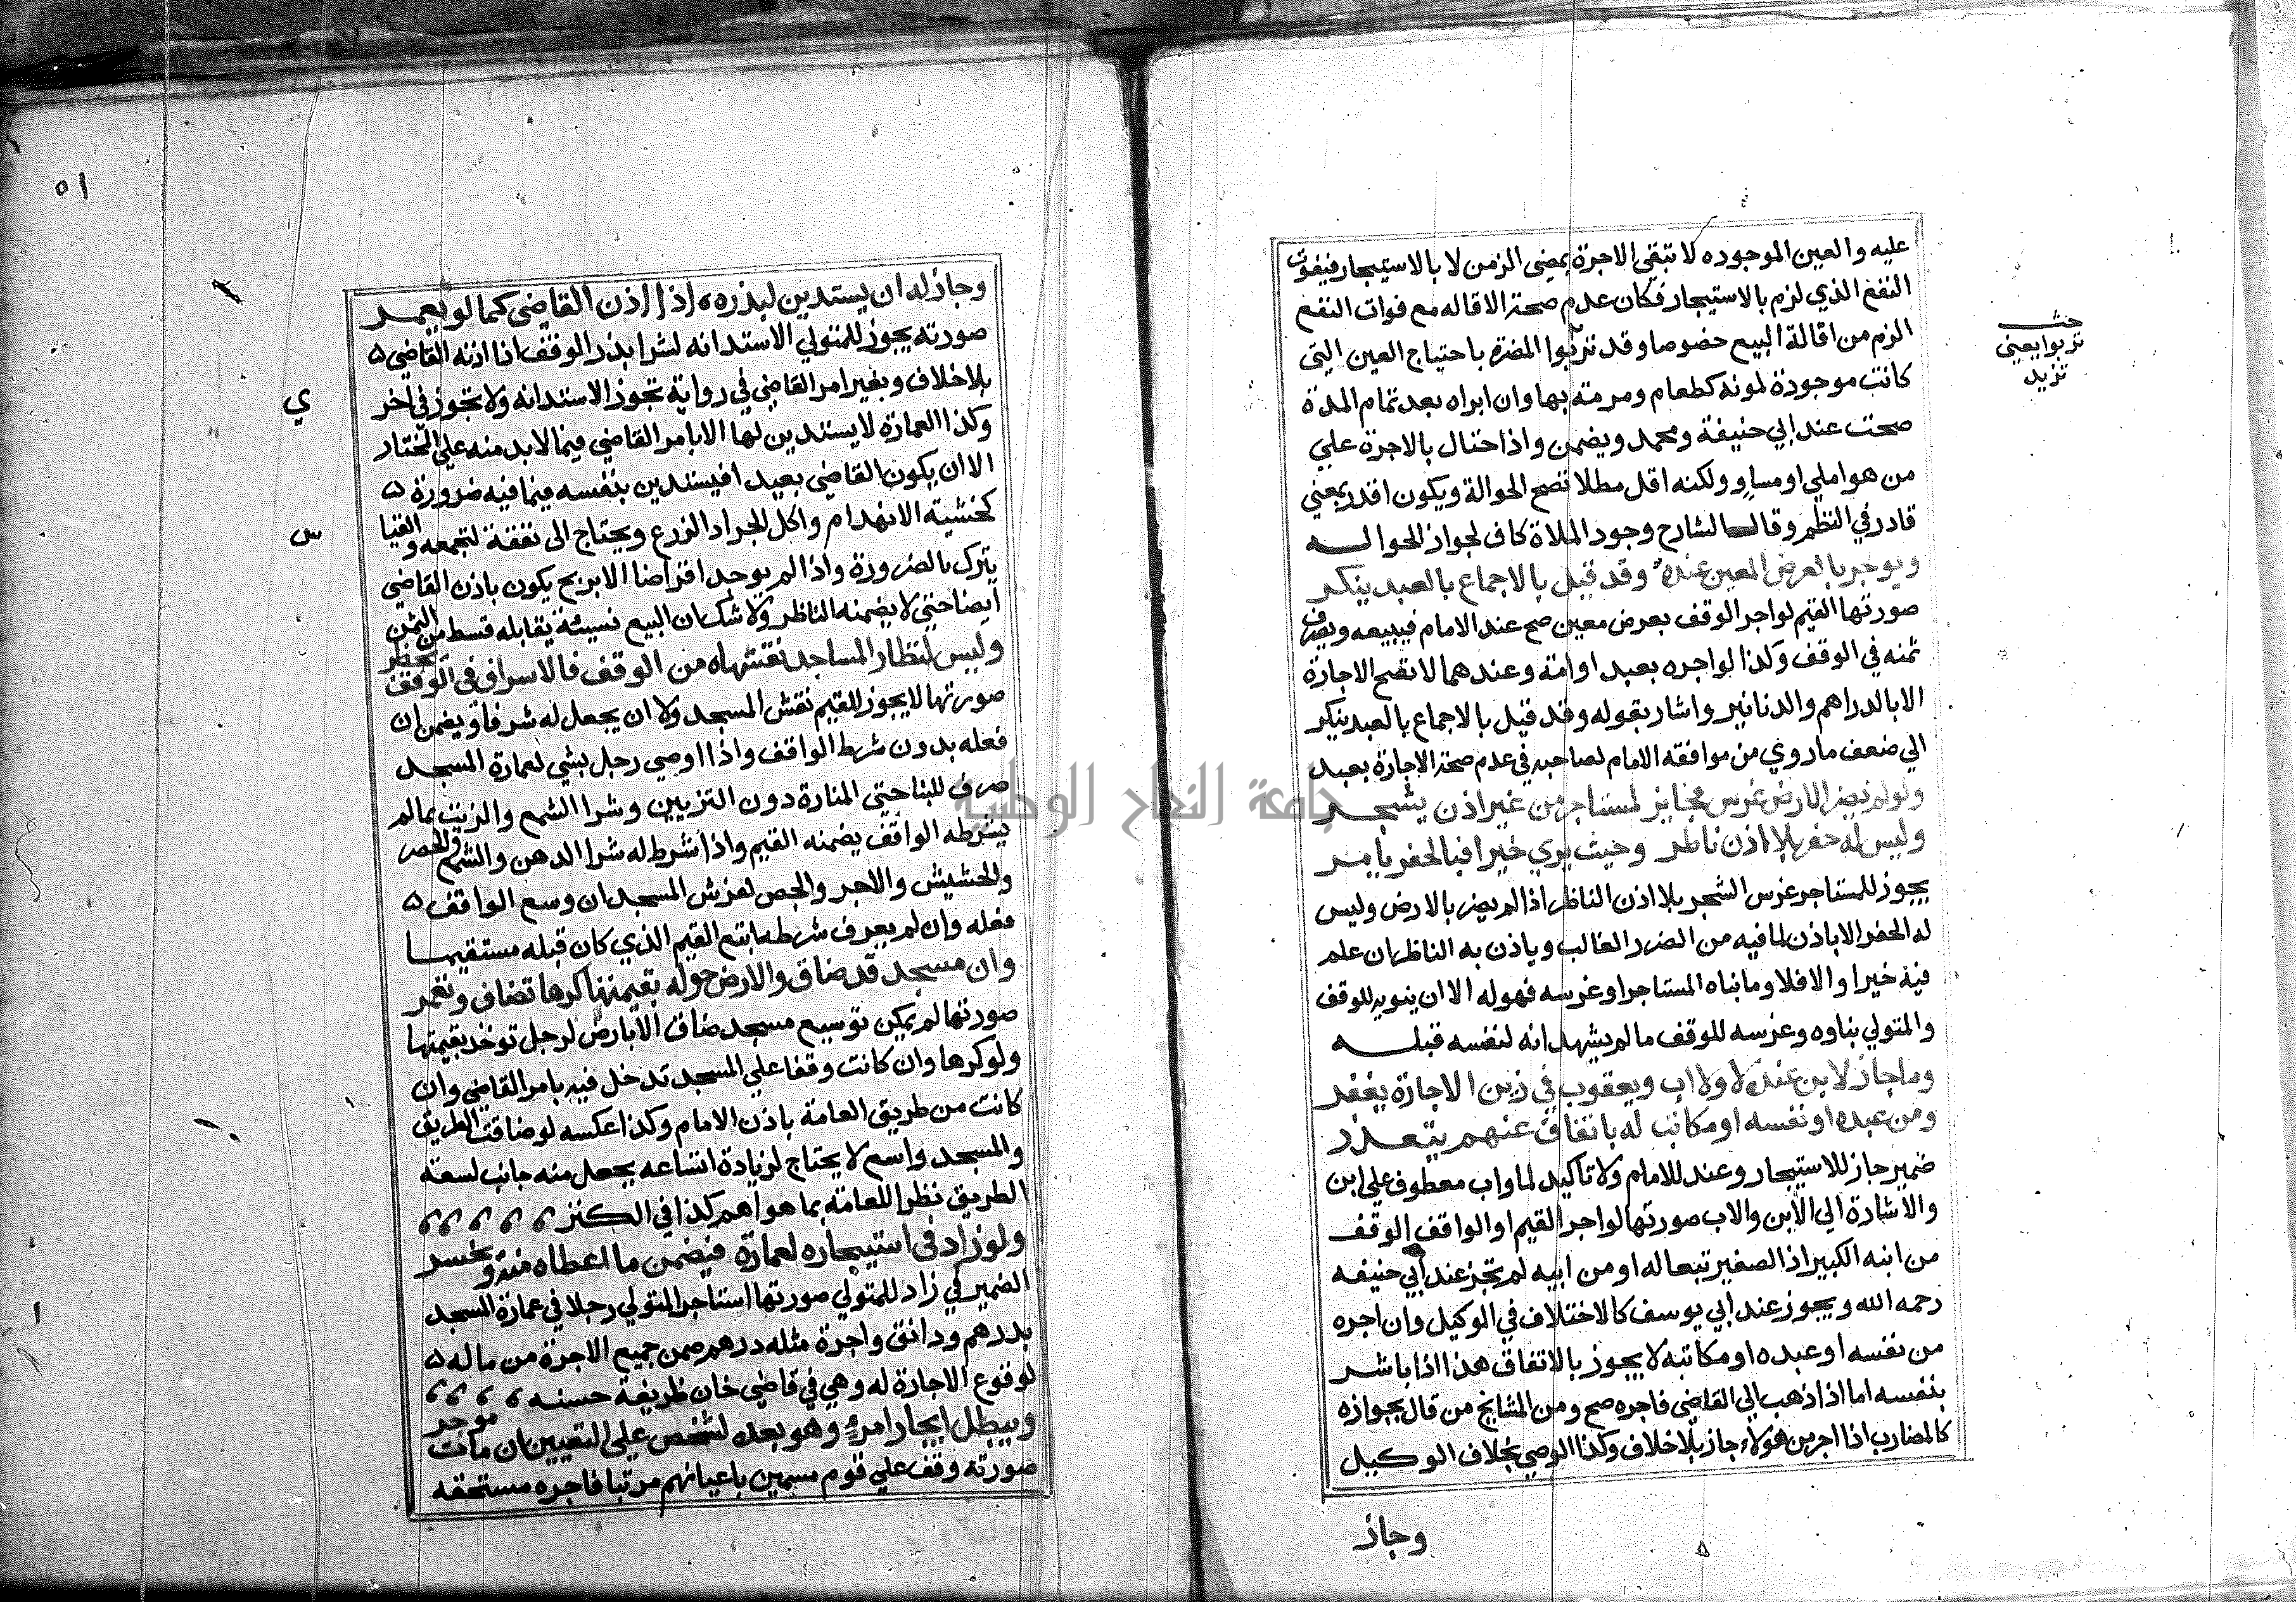 عليه والعين الموجوده لا تبقي الاجرة بمضي الزمن لا بالاستيجار فيفوت
النفع الذي لزم بالاستيجار فكان عدم صحة الاقاله مع فوات النفع
الزم من اقالة البيع خصوصا وقد تربوا المضره باحتياج العين التي
كانت موجودة لمونه كطعام ومرمته بها وان ابراه بعد تمام المدة
صحت عند ابي حنيفة ومحمد ويضمن واذا احتال بالاجرة علي
من هو املي او مساو ولكنه اقل مطلا تصح الحوالة ويكون اقدر بمعني
قادر في النظم وقال الشارح وجود الملاة كاف لجواز الحواله
ويوجر بالعرض المعين عنده وقد قيل بالاجماع بالعبد ينكر
صورتها القيم لو اجر الوقف بعرض معين صح عند الامام فيبيعه ويصرف
ثمنه في الوقف وكذا لو اجره بعبد او امة وعندهما لا تصح الاجارة
الا بالدراهم والدنانير واشار بقوله وقد قيل بالاجماع بالعبد ينكر
الي ضعف ما روي من موافقه الامام لصاحبيه في عدم صحة الاجارة بعبد
ولو لم يضر الارض غرس مجايز لمستاجر من غير اذن يشجر
وليس له حفر بلا اذن ناظر وحيث يري خيرا فبالحفر يامر
يجوز للمستاجر غرس الشجر بلا اذن الناظر اذا لم يضر بالارض وليس
له الحفر الا باذن لما فيه من الضرر الغالب وياذن به الناظر ان علم
فيه خيرا والا فلا وما بناه المستاجر او غرسه فهو له الا ان ينويه للوقف
والمتولي بناوه وغرسه للوقف ما لم يشهد انه لنفسه قبله
وما جاز لابن عنده لا ولا اب ويعقوب في ذين الاجارة ينفذ
ومن عبده او نفسه او مكاتب له باتفاق عنهم يتعذر
ضمير جاز للاستيجار وعند للامام ولا تاكيد لما واب معطوف علي ابن
والاشارة الي الابن والاب صورتها لو اجر القيم او الواقف الوقف
من ابنه الكبير اذ الصغير تبعا له او من ابيه لم تجز عند ابي حنيفه
رحمه الله ويجوز عند ابي يوسف كالاختلاف في الوكيل وان اجره
من نفسه او عبده او مكاتبه لا يجوز بالاتفاق هذا اذا باشر
بنفسه اما اذا ذهب الي القاضي فاجره صح ومن المشايخ من قال بجوازه
كالمضارب اذا اجر من هولاء جاز بلا خلاف وكذا الوصي بخلاف الوكيل
وجاز
تربوا يعني
تزيد
٥١
وجاز له ان يستدين لبذره اذا اذن القاضي كما لو يعمد
صورته يجوز للمتولي الاستدانه لشرا بذر الوقف اذا اذنه القاضي
بلا خلاف وبغير امر القاضي في رواية تجوز الاستدانه ولا تجوز في اخر
وكذا العمارة لا يستدين لها الا بامر القاضي فيما لا بد منه علي المختار
الا ان يكون القاضي بعيدا فيستدين بنفسه فيما فيه ضرورة
كخشية الانهدام واكل الجراد الزرع ويحتاج الى نفقة لتجمعه
يترك بالضرورة واذا لم يوجد اقراضا الا بربح يكون باذن القاضي
ايضا حتي لا يضمنه الناظر ولا شك ان البيع نسيئة يقابله قسط من الثمن
وليس لنظار المساجد نقشها من الوقف فالاسراف في الوقف يحظر
صورتها لا يجوز للقيم نقش المسجد ولا ان يجعل له شرفا ويضمن ان
فعله بدون شرط الواقف واذا اوصي رجل بشي لعمارة المسجد
صرف للبنا حتي المنارة دون التزيين وشرا الشمع والزيت ما لم
يشرطه الواقف يضمنه القيم واذا شرط له شرا الدهن والشمع والحصر
والحشيش والاجر والجص لفرش المسجد ان وسع الواقف
فعله وان لم يعرف شرطه اتبع القيم الذي كان قبله مستقيما
وان مسجد قد ضاق والارض حوله بقيمتها كرها تضاف وتغمر
صورتها لم يمكن توسيع مسجد ضاق الا بارض لرجل توخذ بقيمتها
ولو كرها وان كانت وقفا علي المسجد تدخل فيه بامر القاضي وان
كانت من طريق العامة باذن الامام وكذا عكسه لو ضاقت الطريق
والمسجد واسع لا يحتاج لزيادة اتساعه يجعل منه جانب لسعة
الطريق نظرا للعامة بما هو اهم كذا في الكنز
ولو زاد في استيجاره لعمارة فيضمن ما اعطاه منه ويخسر
الضمير في زاد للمتولي صورتها استاجر المتولي رجلا في عمارة المسجد
بدرهم ودانق واجرة مثله درهم ضمن جميع الاجرة من ماله
لوقوع الاجارة له وهي في قاضي خان ظريفة حسنه
ويبطل ايجار امرء وهو بعده لشخص علي التعيين ان مات موجر
صورته وقف علي قوم مسمين باعيانهم مرتبا فاجره مستحقه
ي
س
جامعة النجاح الوطنية